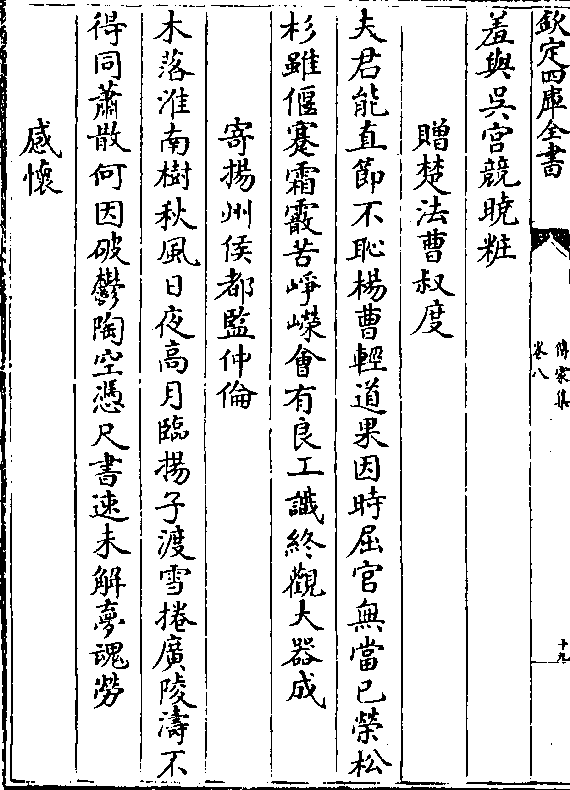 欽定四庫全書
傳家集
卷八
十九
羞與吳宫競曉粧
贈楚法曹叔度
夫君能直節不恥楊曹輕道果因時屈官無當已榮松
杉雖偃蹇霜霰苦崢嶸會有良工識終觀大器成
寄揚州侯都監仲倫
木落淮南樹秋風日夜高月臨揚子渡雪捲廣陵濤不
得同蕭散何因破鬱陶空憑尺書速未解夢魂勞
感懷